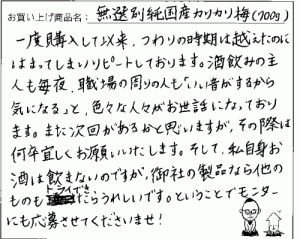 お買い上げ商品名：無選別純国産カリカリ梅(700g)
一度購入して以来、つわりの時期は越えたのに
はまってしまいリピートしております。酒飲みの主
人も毎夜、職場の周りの人も「いい音がするから
気になる」と、色々な人々がお世話になっており
ます。また次回があるかと思いますが、その際は
何卒宜しくお願いいたします。そして、私自身お
酒は飲まないのですが、御社の製品なら他の
ものもトライできたらうれしいです。ということでモニター
にも応募させてくださいませ!